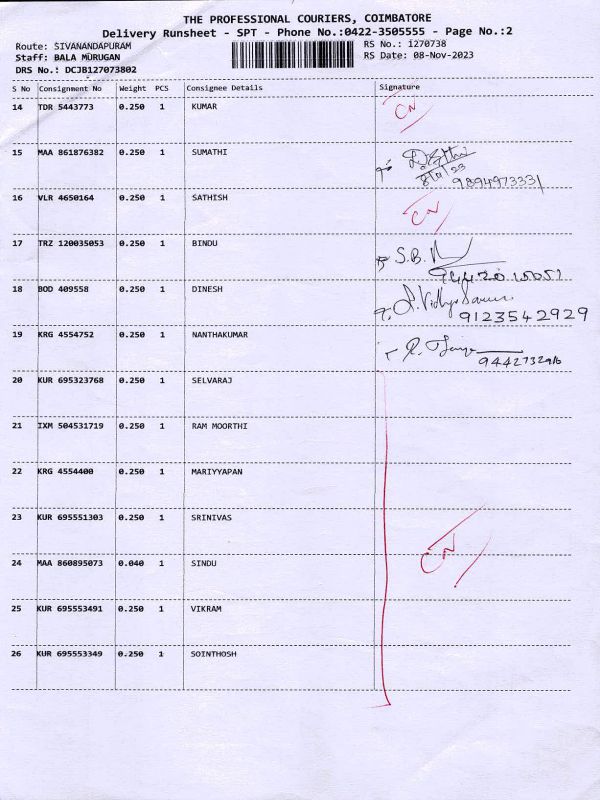 THE PROFESSIONAL COURIERS, COIMBATORE
Delivery Runsheet - SPT - Phone No.:0422-3505555 - Page No.:2
Route: SIVANANDAPURAM RS No.: 1270738
Staff: BALA MURUGAN RS Date: 08-Nov-2023
DRS No.: DCJB127073802
S No Consignment No Weight PCS Consignee Details Signature
14 TDR 5443773 0.250 1 KUMAR CN
15 MAA 861876382 0.250 1 SUMATHI
8/11/23
9894973331
16 VLR 4650164 0.250 1 SATHISH CN
17 TRZ 120035053 0.250 1 BINDU S.B.
18 BOD 409558 0.250 1 DINESH
9123542929
19 KRG 4554752 0.250 1 NANTHAKUMAR R.
9442732916
20 KUR 695323768 0.250 1 SELVARAJ
21 IXM 504531719 0.250 1 RAM MOORTHI
22 KRG 4554400 0.250 1 MARIYYAPAN
23 KUR 695551303 0.250 1 SRINIVAS
24 MAA 860895073 0.040 1 SINDU CN
25 KUR 695553491 0.250 1 VIKRAM
26 KUR 695553349 0.250 1 SOINTHOSH